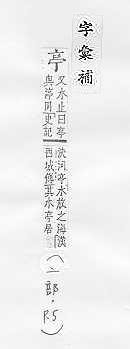 字彙補
亭
又水止曰亭
與渟同史記
決河亭水放之海漢
西域傳其水亭居
(亠部·P5)